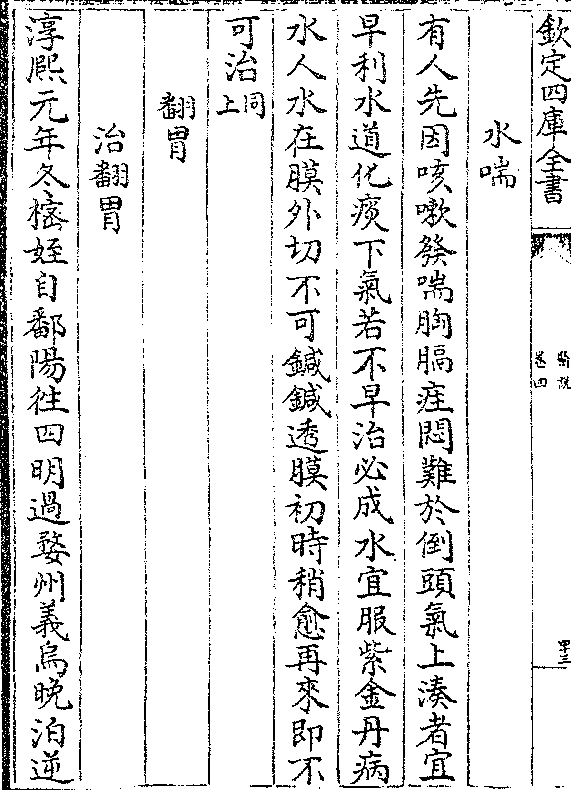 欽定四庫全書
醫說
卷四
四十三
水喘
有人先因咳嗽發喘胸膈疰悶難於倒頭氣上湊者宜
早利水道化痰下氣若不早治必成水宜服紫金丹病
水人水在膜外切不可鍼鍼透膜初時稍愈再來即不
可治同上
翻胃
治翻胃
淳熙元年冬檧姪自鄱陽往四明過婺州義烏晚泊逆